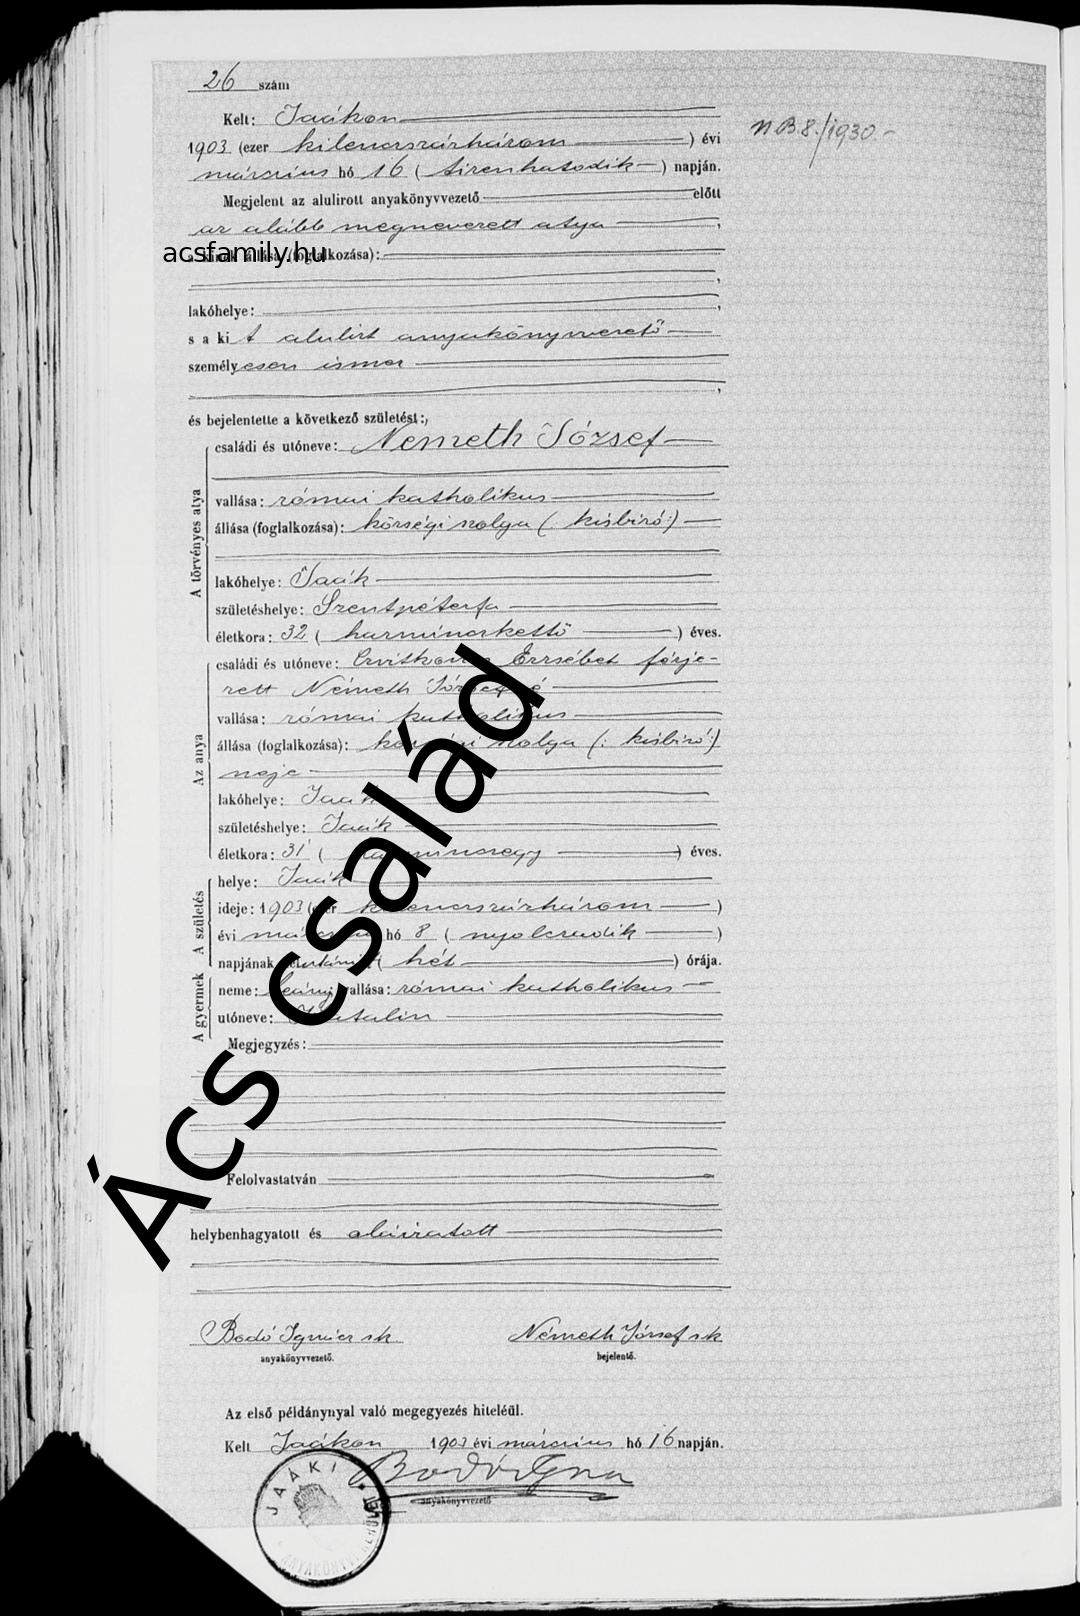 26 szám
Kelt: Jaákon
1903 (ezer kilencszázhárom) évi
márczius hó 16 (tizenhatodik) napján.
Megjelent az alulirott anyakönyvvezető előtt
az alább megnevezett atya,
acsfamily.hu
a kinek állása (foglalkozása):
lakóhelye:
s a kit alulirt anyakönyvvezető
személyesen ismer
és bejelentette a következő születést:
A törvényes atya
családi és utóneve: Németh József
vallása: római katholikus
állása (foglalkozása): községi szolga (: kisbiró :)
lakóhelye: Jaák
születéshelye: Szentpéterfa
életkora: 32 (harminczkettő) éves.
Az anya
családi és utóneve: Erzsébet férje-
zett Németh Józsefné
vallása: római katholikus
állása (foglalkozása): községi szolga (: kisbiró :)
neje
lakóhelye: Jaák
születéshelye: Jaák
életkora: 31 (harminczegy) éves.
A születés
helye: Jaák
ideje: 1903 (ezer kilenczszázhárom)
évi márczius hó 8 (nyolczadik)
napjának délutáni (két) órája.
A gyermek
neme: leány vallása: római katholikus
utóneve: Katalin
Megjegyzés:
Felolvastatván
helybenhagyatott és aláiratott
Bodó Ignácz sk
anyakönyvvezető.
Németh József sk
bejelentő.
Az első példánynyal való megegyezés hiteléül.
Kelt Jaákon 1903 évi márczius hó 16 napján.
Bodó Igna
anyakönyvvezető
JAÁKI
N.B.8./1930.-
Ács család